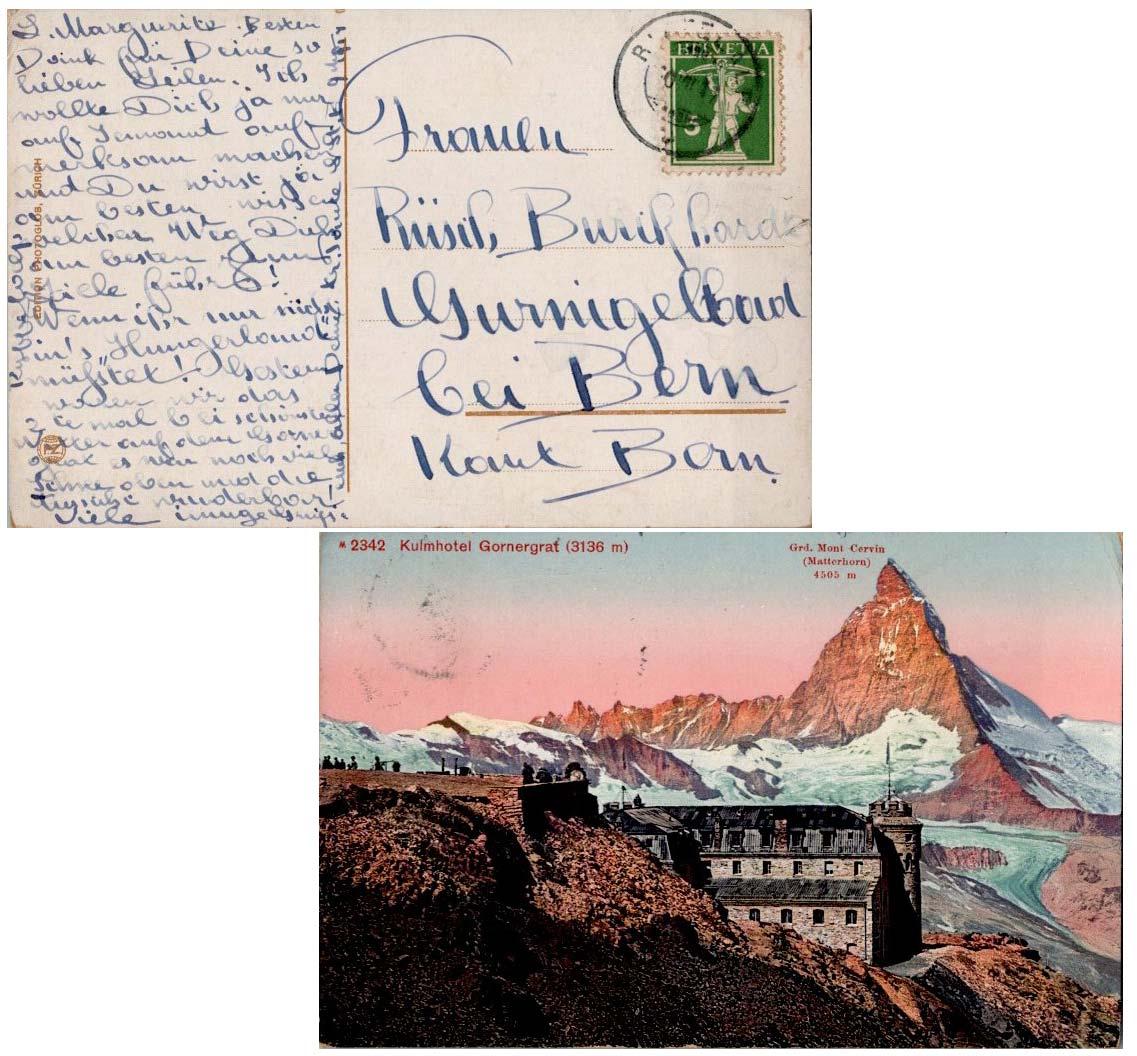 L. Marguerite. Besten
Dank für Deine so
lieben Zeilen. Ich
wollte Dich ja nur
auf Jemand auf-
merksam machen
und Du wirst ja
am besten wissen
welcher Weg Dich
am besten zum
Ziele führt!
Wenn ihr nur nicht
in's "Hungerland"
müsstet! Gestern
waren wir das
2te mal bei schönstem
Wetter auf dem Gorner
grat es war noch viel
Schnee oben und die
Aussicht wunderbar
Viele innige
EDITION PHOTOGLOB, ZÜRICH
PZ
HELVETIA
5
Frauen
Rüsch, Burckhardt
Gurnigelbad
bei Bern
Kant Bern.
M 2342 Kulmhotel Gornergrat (3136 m)
Grd. Mont Cervin
(Matterhorn)
4505 m